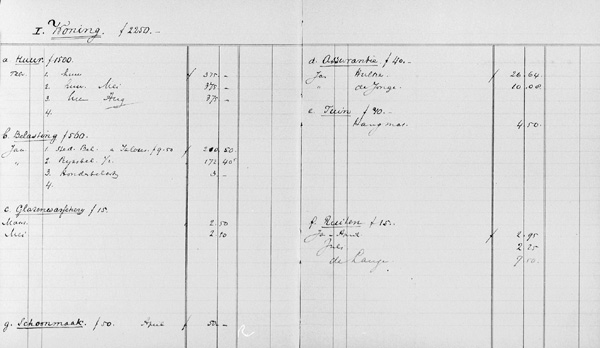 I. Koning. f 2250.-
a. Huur f 1500.
1. huur f 375 -
2. huur Mei 375 -
3. Huur Aug 375 -
4.
b. Belasting f 500.
Jan 1. Ned. Bel. f 9.50 f 200 50
" 2. Rijksbel. 172 40
3. Hondebelast 3 -
4.
c. Glazenwasscherij f 15.
2 50
Mei 2 20
g. Schoonmaak. f 50. April f 50 -
d. Assurantie f 40.-
Jan f 20 64
" de Jonge. 10 08
e. Tuin f 30.
Hangmat. 4 50
f. Ruiten f 15.-
f 2 95
2 25
de Lange 7 50